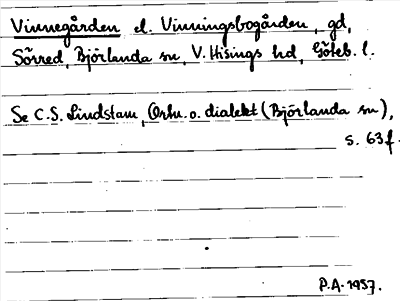 Vinnegården el. Vinningsbogården, gd,
Sörred, Björlanda sn, V. Hisings hd, Göteb. l.
Se C.S. Lindstam, Ortn. o. dialekt (Björlanda sn),
s. 63 f.
P.A. 1957.